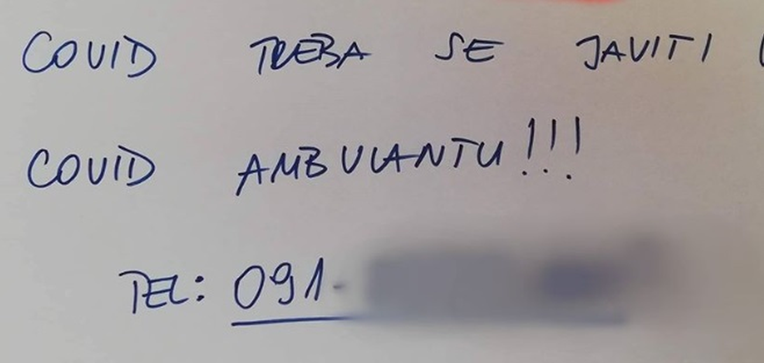 COVID TREBA SE JAVITI
COVID AMBULANTU!!!
TEL: 091-